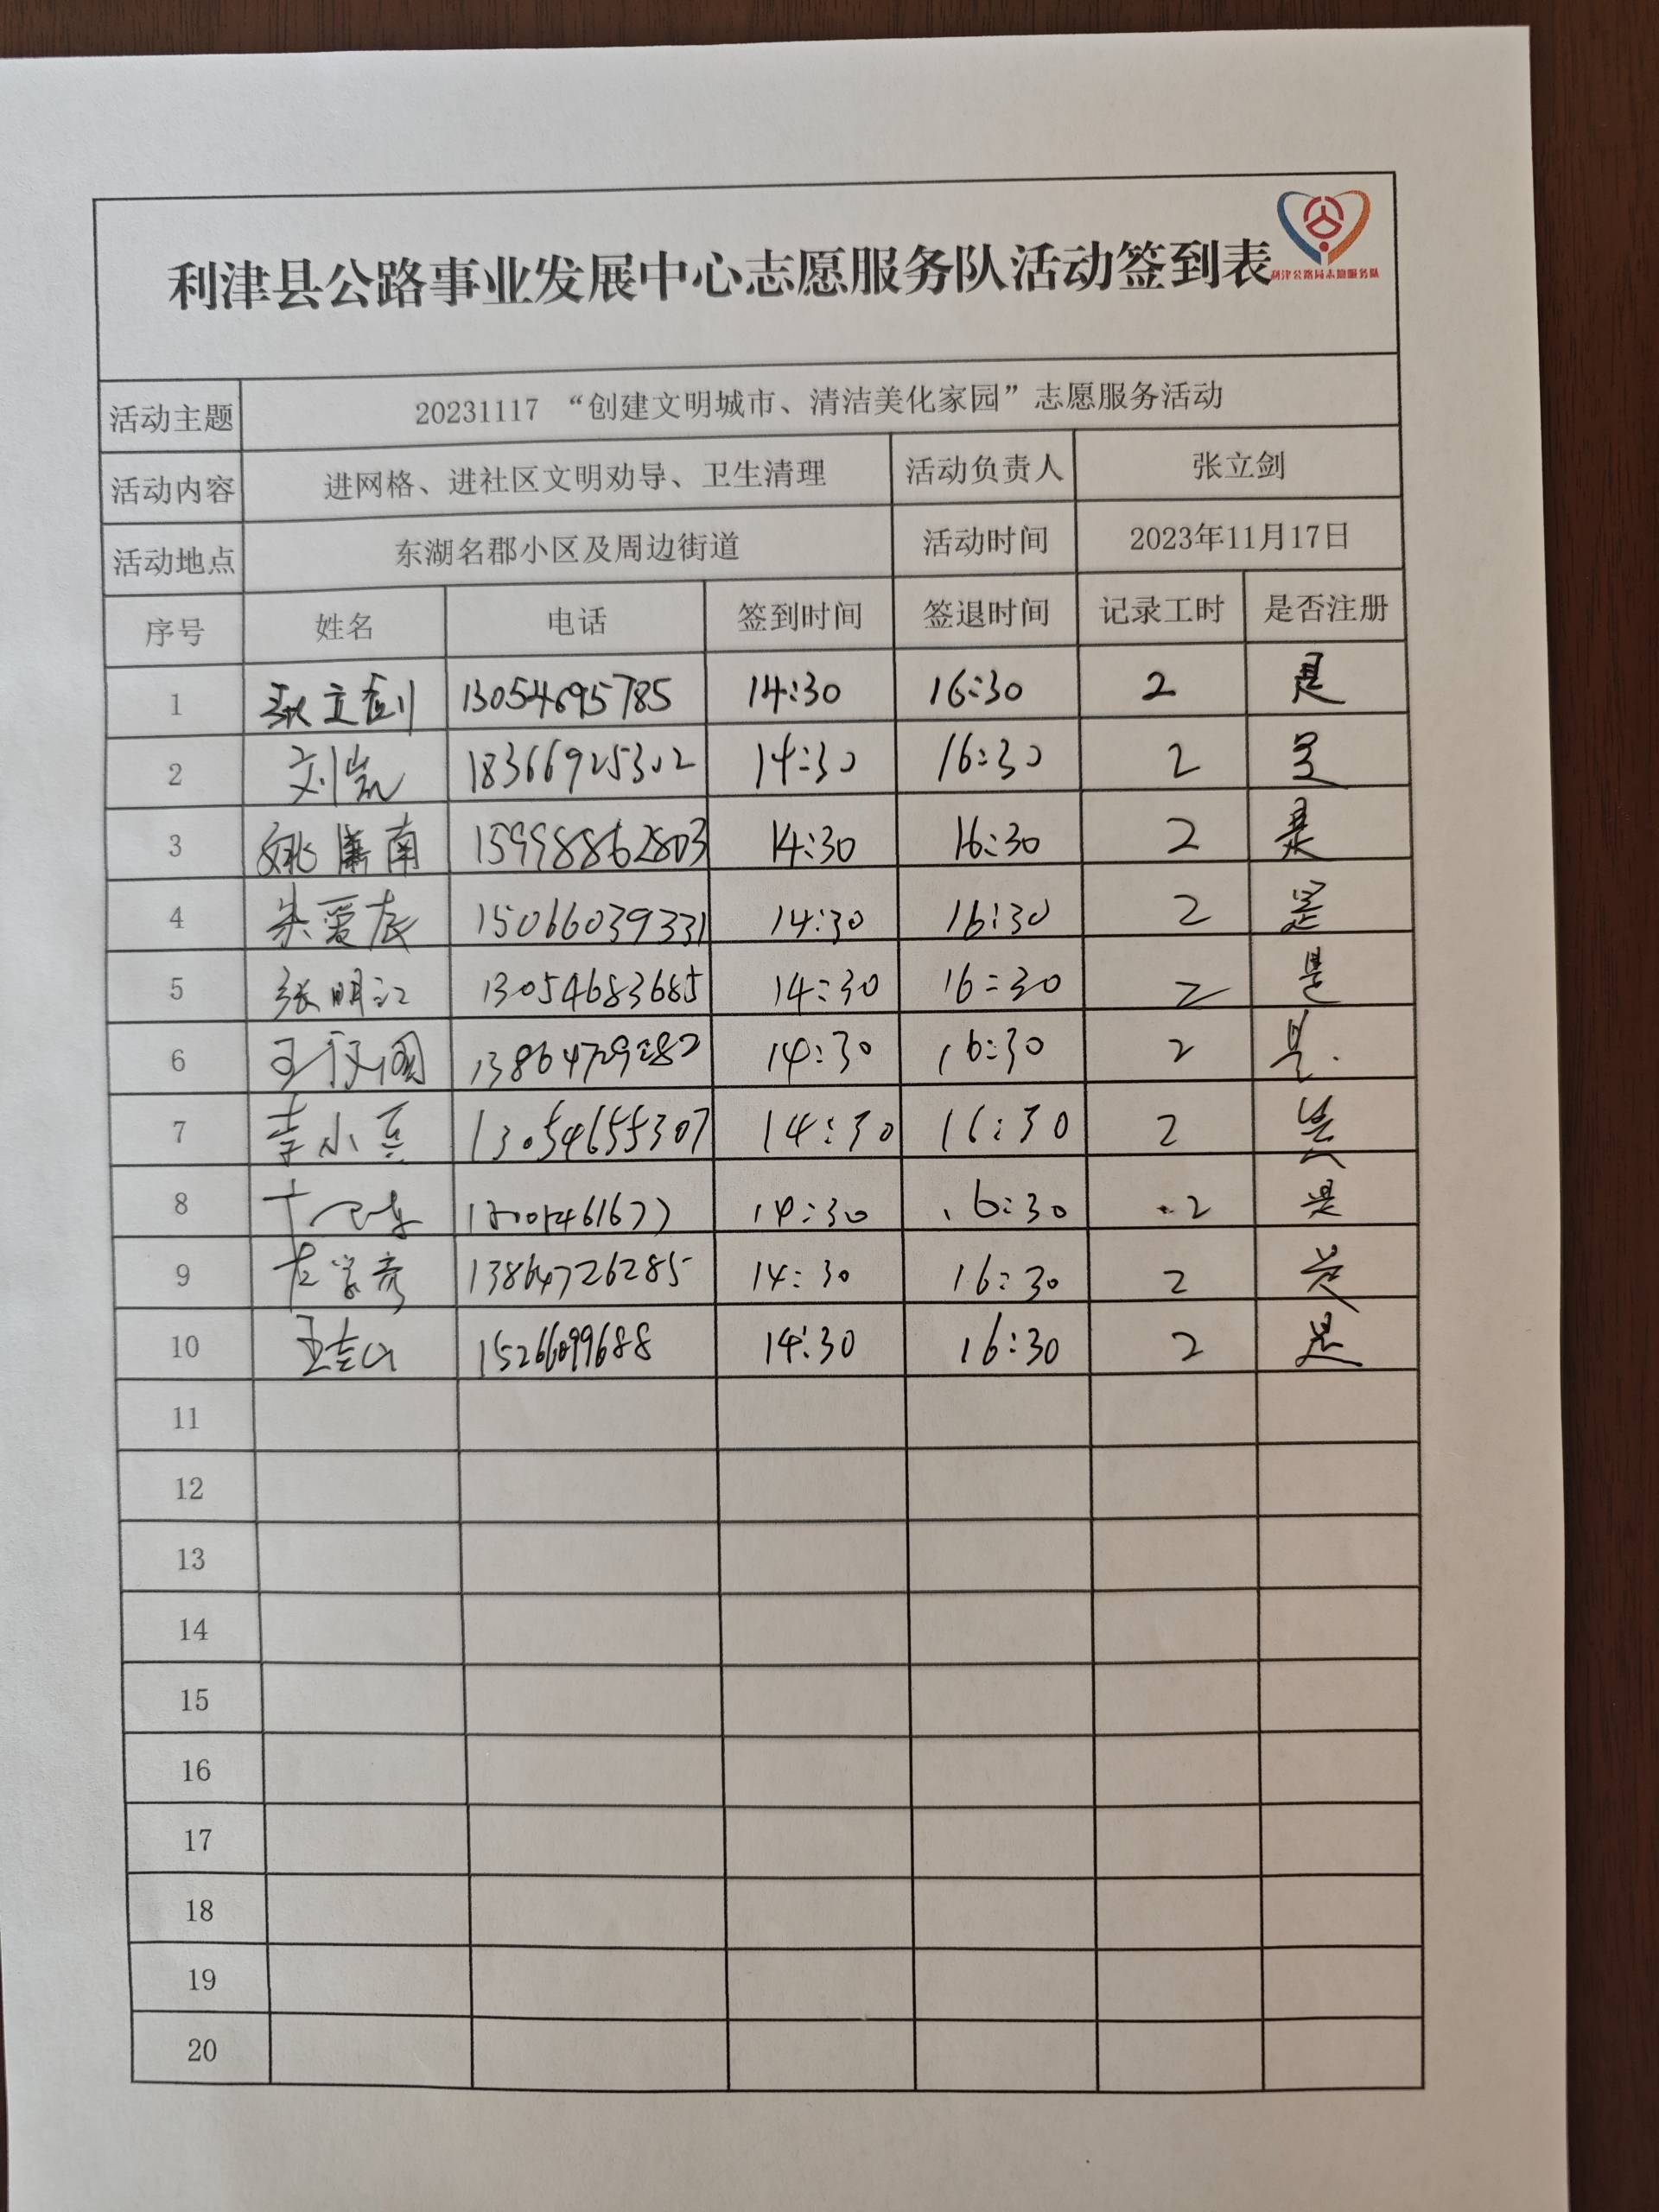 利津县公路事业发展中心志愿服务队活动签到表
利津公路局志愿服务队
活动主题 20231117 “创建文明城市、清洁美化家园”志愿服务活动
活动内容 进网格、进社区文明劝导、卫生清理 活动负责人 张立剑
活动地点 东湖名郡小区及周边街道 活动时间 2023年11月17日
序号 姓名 电话 签到时间 签退时间 记录工时 是否注册
1 张立剑 13054695785 14:30 16:30 2 是
2 刘凯 18366925302 14:30 16:30 2 是
3 15998862803 14:30 16:30 2 是
4 15066039331 14:30 16:30 2 是
5 张明江 13054683685 14:30 16:30 2 是
6 14:30 16:30 2 是.
7 13054655307 14:30 16:30 2 是
8 14:30 16:30 2 是
9 13864726285 14:30 16:30 2 是
10 15266099688 14:30 16:30 2 是
11
12
13
14
15
16
17
18
19
20